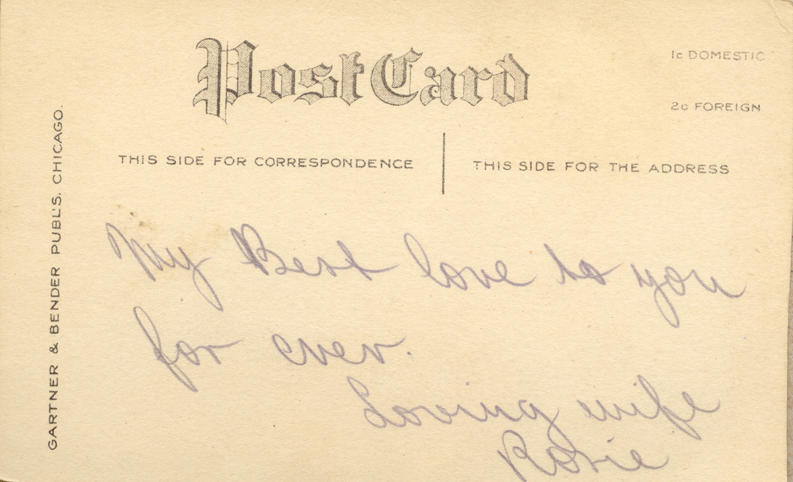 Post Card
1c DOMESTIC
2c FOREIGN
THIS SIDE FOR CORRESPONDENCE
THIS SIDE FOR THE ADDRESS
GARTNER & BENDER PUBL'S. CHICAGO.
My Best love to you
for ever.
Loving wife
Rosie